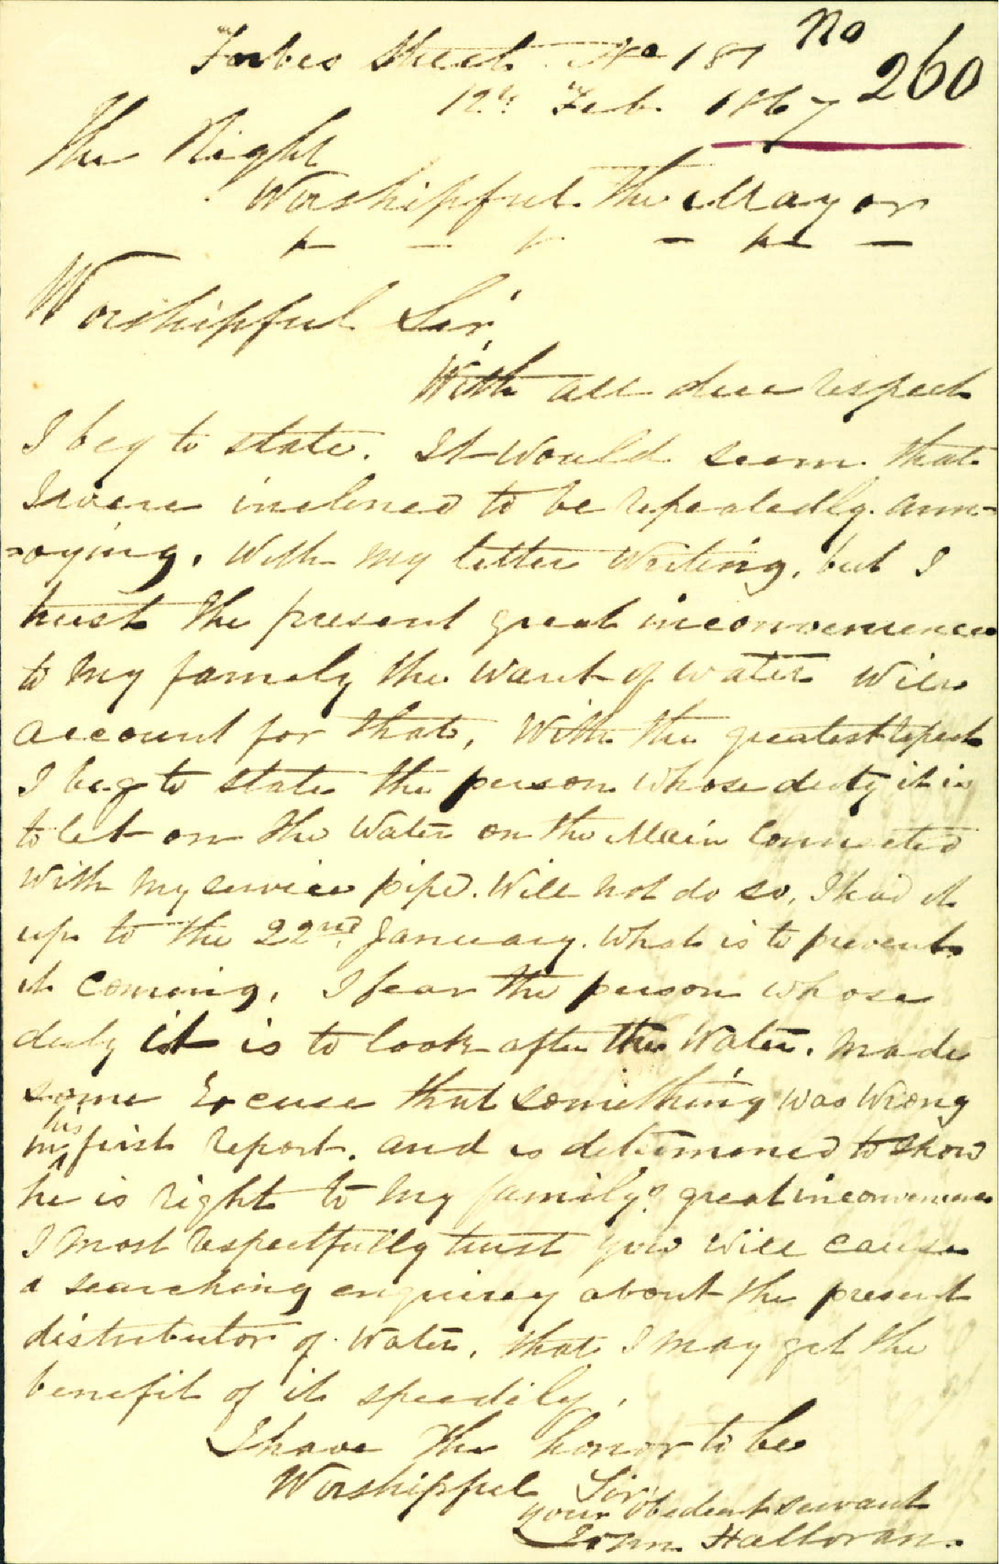 No
260
Forbes Street No 187
12th Feb. 1867
The Right
Worshipful The Mayor
Worshipful Sir,
With all due respect
I beg to state. It Would seem that
I were inclined to be repeatedly ann=
=oying, With my letter Writing, but I
trust the present great inconvenience
to my family the want of water Will
account for that, With the greatest respect
I beg to state the person Whose duty it is
to let on the Water on the Main Connected
With my service pipe. Will not do so, I had it
up to the 22nd January. What is to prevent
it Coming, I fear the person whose
duty it is to look after the Water. Made
some Excuse that something was Wrong
in his first report. and is determened to show
he is right to my family's great inconvenience
I most respectfully trust you will cause
a searching enquirey about the present
distributor of Water, that I may get the
benefit of it speedily,
I have the honor to be
Worshipful Sir
your obedient servant
John Halloran.